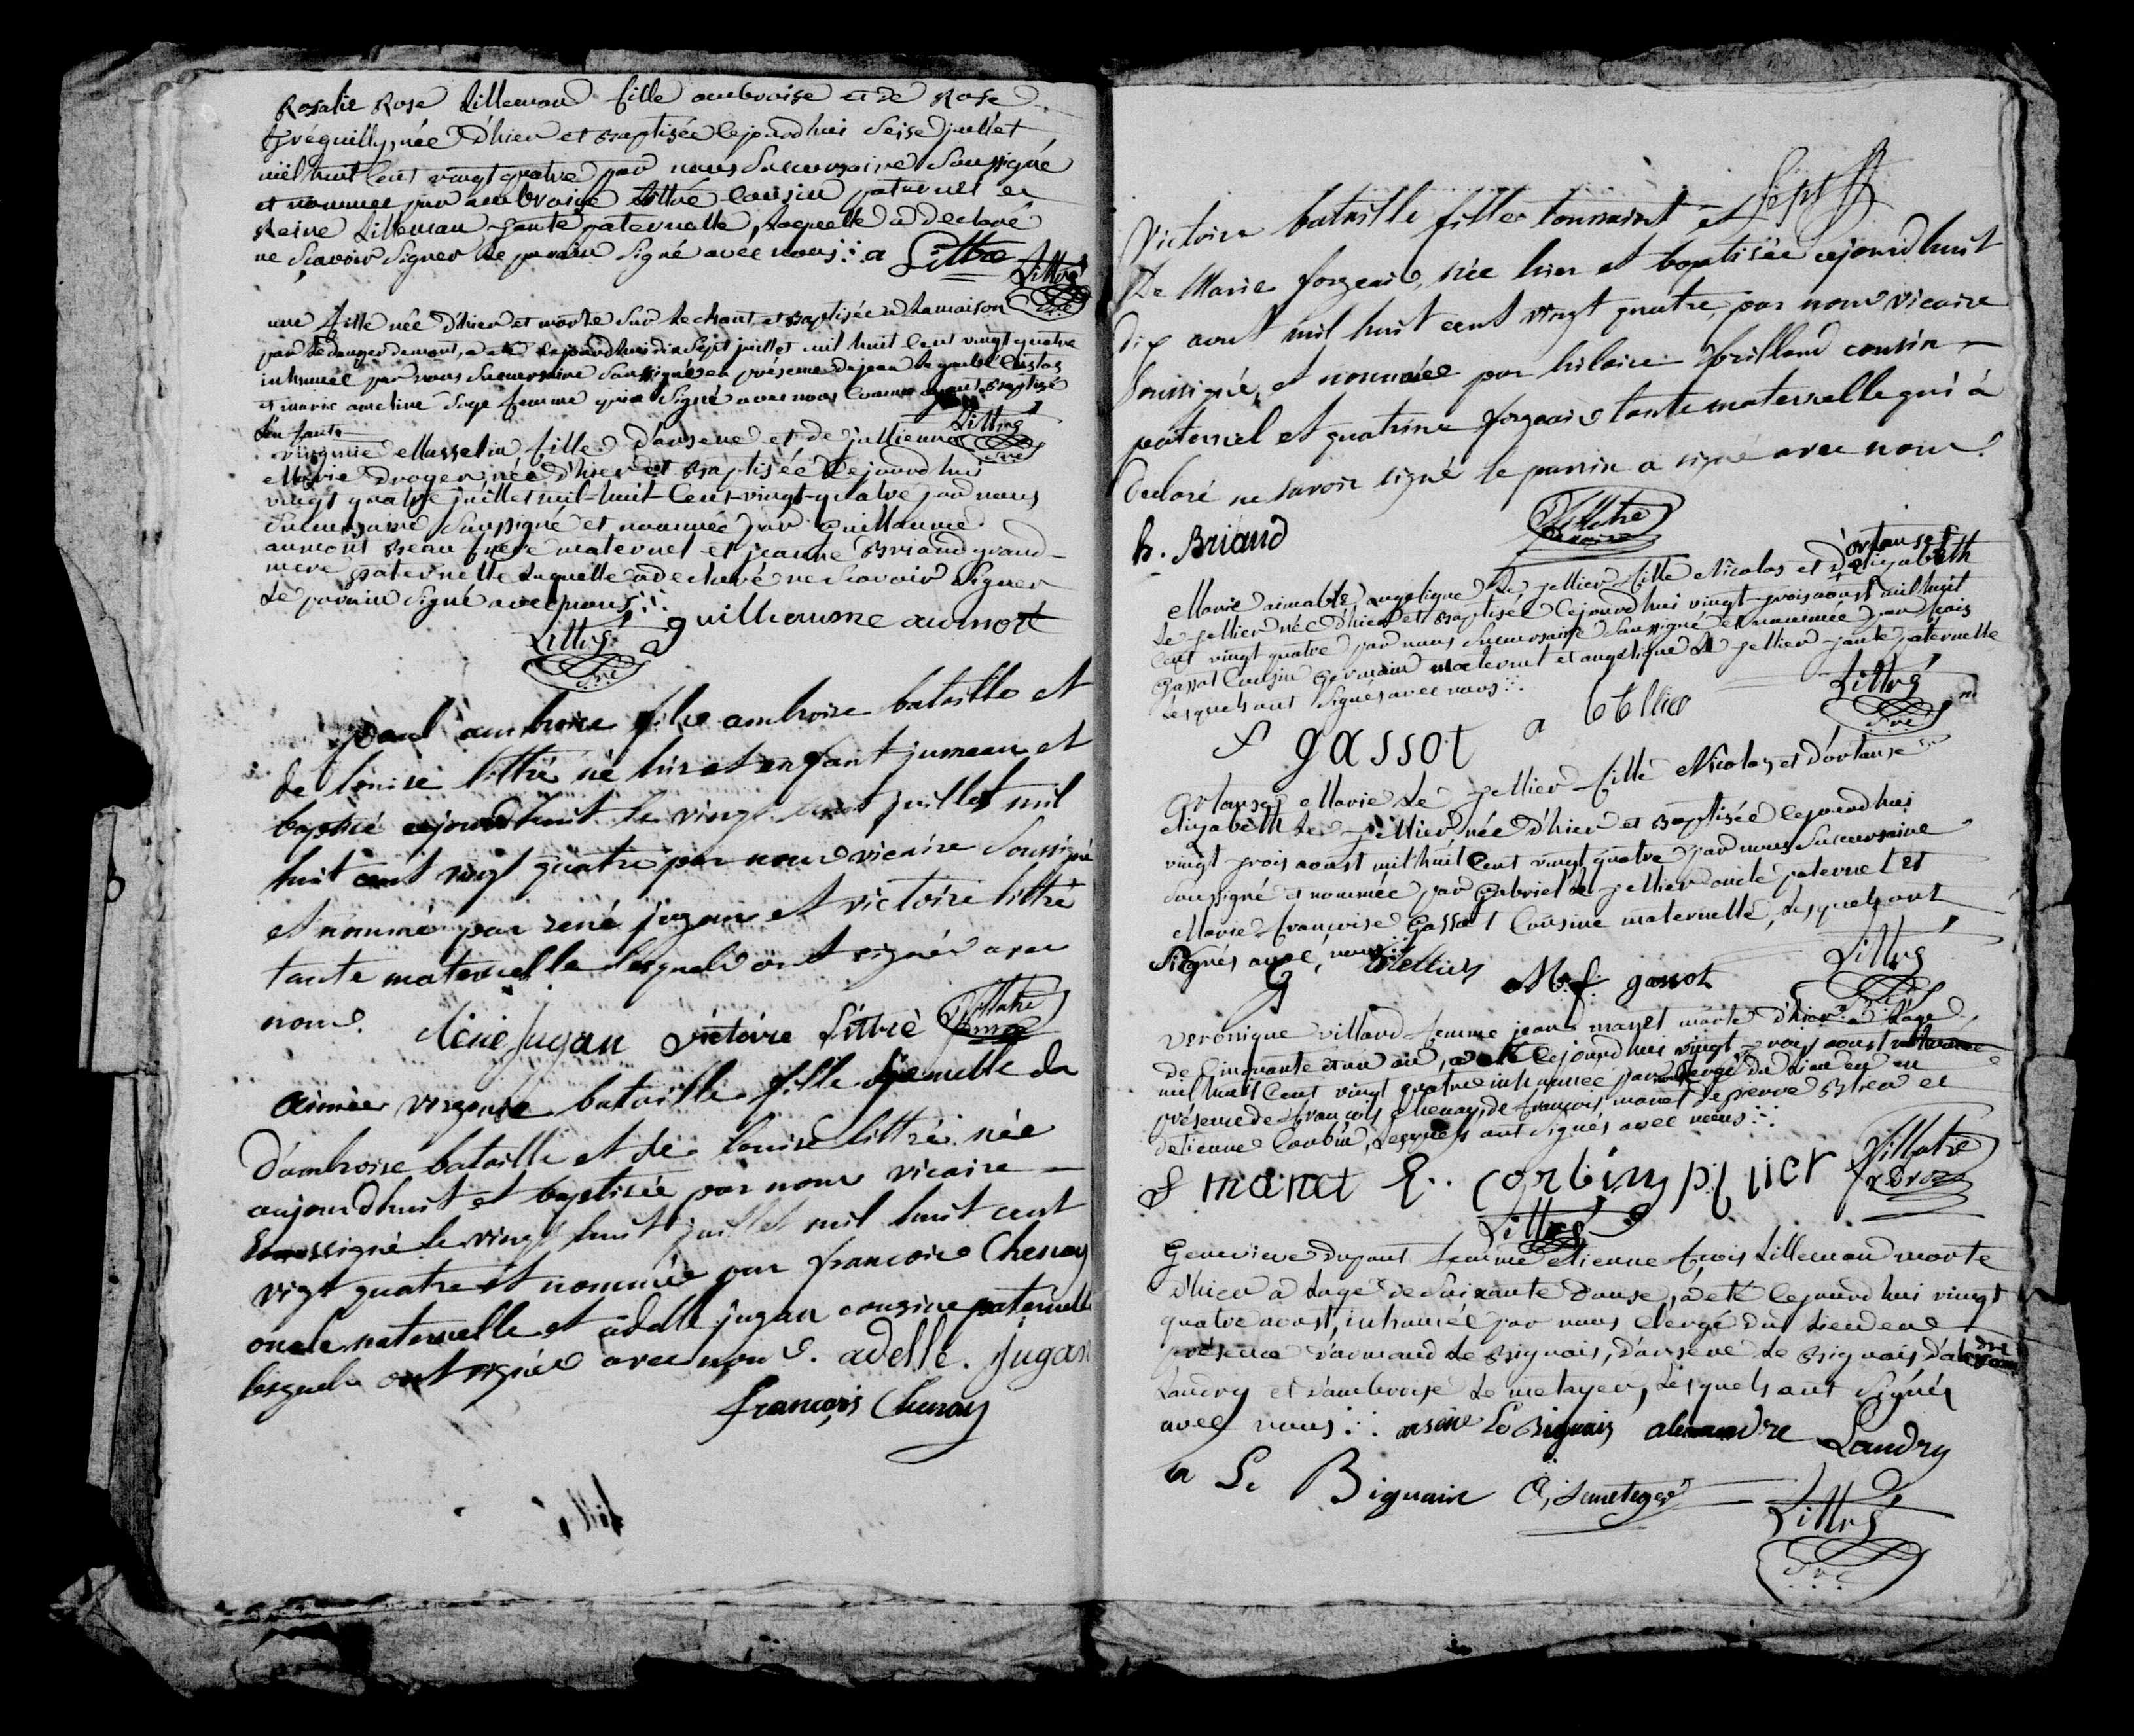 Rosalie Rose Lilleman fille ambroise et de Rose
tréguilly, née d'hier et Baptisée cejourdhui seise juillet
mil huit Cent vingt quatre par nous Sucursaire Soussigné
et nommée par ambroise Littré Cousin paternel et
Reine Lilleman tante paternelle, laquelle a déclaré
ne Scavoir Signer le parain Signé avec nous a Littré
Littré
une fille née d'hier et morte sur le chant et Baptisée a la maison
par le danger de mort, a eté cejourdhui dix sept juillet mil huit Cent vingt quatre
inhumée par nous Sucursaire Soussigné en présence de jean
et marie ameline Sage femme qui a Signé avec nous Comme ayant Baptisé
L'enfant
Littré
virginie Masselin, fille d'arsene et de jullienne
Marie droger née d'hier et Baptisée Cejourd hui
vingt quatre juillet mil-huit-Cent-vingt-quatre par nous
Sucursaire Soussigné et nommée par Guillaume
aumont Beau frere maternel et jeanne Briand grand-
mere paternelle laquelle a declaré ne Scavoir Signer
Le parain Signé avec nous
Littré guilleaume aumort
paul ambroise fils ambroise bataille et
de louise littré né hier et enfant jumeau et
baptisé cejourdhuit le vingt huit juillet mil
huit cent vingt quatre par nous vicaire Soussigné
et nommé par rené jugan et victoire littré
tante maternelle lesquels ont signé avec
nous. René Jugan Victoire Littré Villatre
aimée virginie bataille fille gemelle de
d'ambroise bataille et de louise littré née
aujourdhuit et baptisée par nous vicaire
Soussigné le vingt huit juillet mil huit cent
vigt quatre et nommée par francois Chenay
oncle maternelle et adelle jugan cousine paternelle
lesquels ont signé avec nous. adelle. jugan
françois Chenay
Sept
Victoire bataille fille toussaint et
De Marie forgeais, née hier et baptisée cejourdhuit
dix aout mil huit cent vingt quatre, par nous vicaire
Soussigné, et nommée par hilaire brilland cousin
paternel et quatrine forgeais tante maternelle qui a
declaré ne savoir signé le parrin a signé avec nous.
h. Briand Villatre vicaire
Marie aimable angelique Le tellier fille Nicolas et d'ortanse Elizabeth
Le tellier née d'hier et Baptisée Cejourd hui vingt-trois aoust mil huit
Cent vingt quatre par nous Sucursaire Soussigné et nommée par fcois
Gassot Cousin Germain maternel et angelique Le tellier tante paternelle
Lesquels ont Signés avec nous
Littré
f gassot a le tellier
Ortanse Marie Le tellier fille Nicolas et d'ortanse
elizabeth Le tellier née d'hier et Baptisée Cejourd hui
vingt trois aoust mil huit Cent vingt quatre par nous Sucursaire
Soussigné et nommée par Gabriel Le tellier oncle paternel et
Marie francoise Gassot Cousine maternelle, lesquels ont
Signés avec nous
G letellier M. f. gassot Littré
veronique villard femme jean manet morte d'hier a L'age
de Cinquante et un an, a eté Cejourd hui vingt-trois aoust
mil huit Cent vingt quatre inhumée par nous clergé du Lieu en
présence de françois Chenay, de françois manet de pierre Brien et
d'etienne Corbin, Lesquels ont Signés avec nous
f manet E. Corbin Villatre
Littré
Genevieve dupont femme etienne fcois Lilleman morte
d'hier a Lage de Soixante douse, a eté Cejourd hui vingt
quatre aoust, inhumée par nous Clergé du Lieu en
présence d'armand Le Bignais, d'arsene Le Bignais, d'alexandre
Landry et d'ambroise Le metayer, Lesquels ont Signés
avec nous arsene Le Bignais alexandre Landry
a Le Bignais A, Lemetayer
Littré